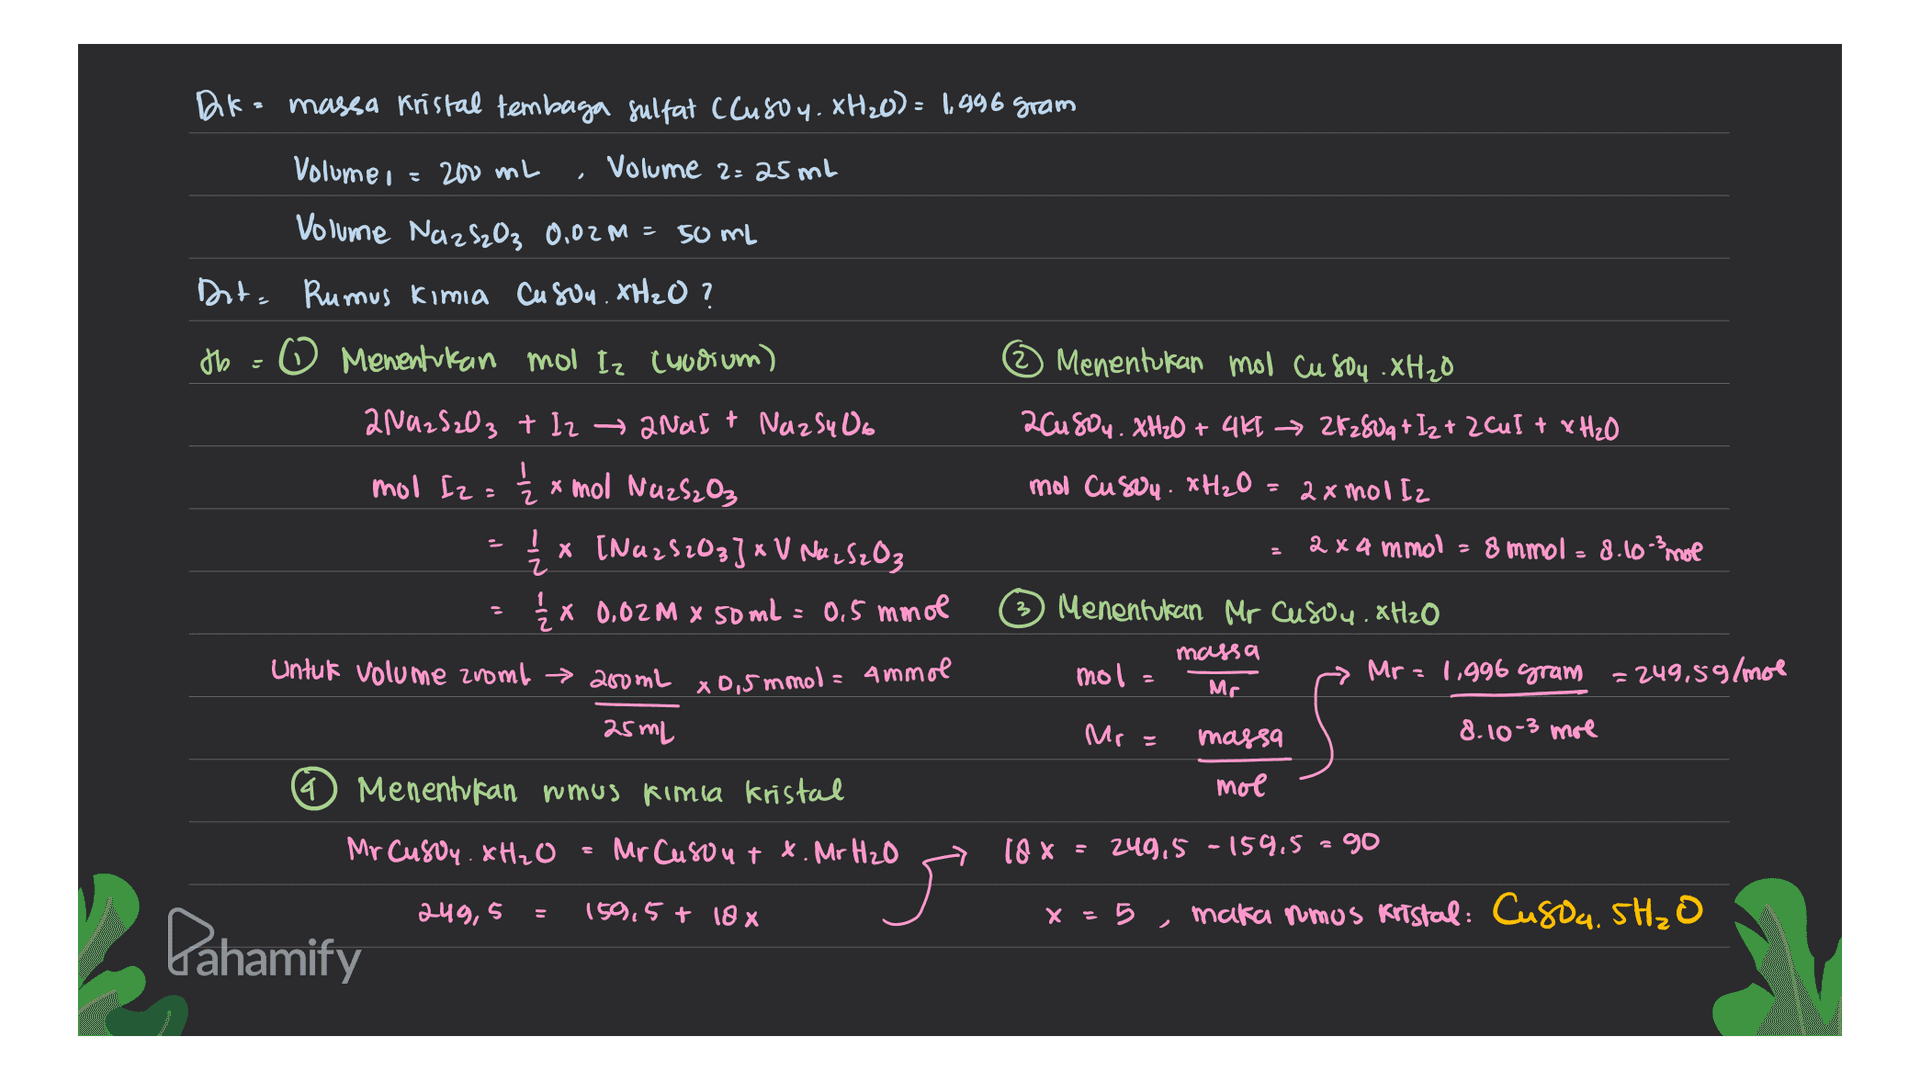 Dik = massa kristal tembaga sulfat (CuSO4.xH2O) = 1,996 gram
Volume 1 = 200 mL , Volume 2 = 25 mL
Volume Na2S2O3 0,02 M = 50 mL
Dit = Rumus kimia CuSO4.xH2O ?
Jb = ① Menentukan mol I2 (yodium)
2Na2S2O3 + I2 → 2NaI + Na2S4O6
mol I2 = 1/2 x mol Na2S2O3
= 1/2 x [Na2S2O3] x V Na2S2O3
= 1/2 x 0,02 M x 50 mL = 0,5 mmol
Untuk Volume 200 mL → 200 mL / 25 mL x 0,5 mmol = 4 mmol
② Menentukan mol CuSO4.xH2O
2CuSO4.xH2O + 4KI → 2K2SO4 + I2 + 2CuI + xH2O
mol CuSO4.xH2O = 2 x mol I2
= 2 x 4 mmol = 8 mmol = 8.10-3 mol
③ Menentukan Mr CuSO4.xH2O
mol = massa / Mr
Mr = massa / mol
→ Mr = 1,996 gram / 8.10-3 mol = 249,5 g/mol
④ Menentukan rumus kimia kristal
Mr CuSO4.xH2O = Mr CuSO4 + x.Mr H2O
249,5 = 159,5 + 18x
→ 18x = 249,5 - 159,5 = 90
x = 5 , maka rumus kristal: CuSO4.5H2O
Pahamify